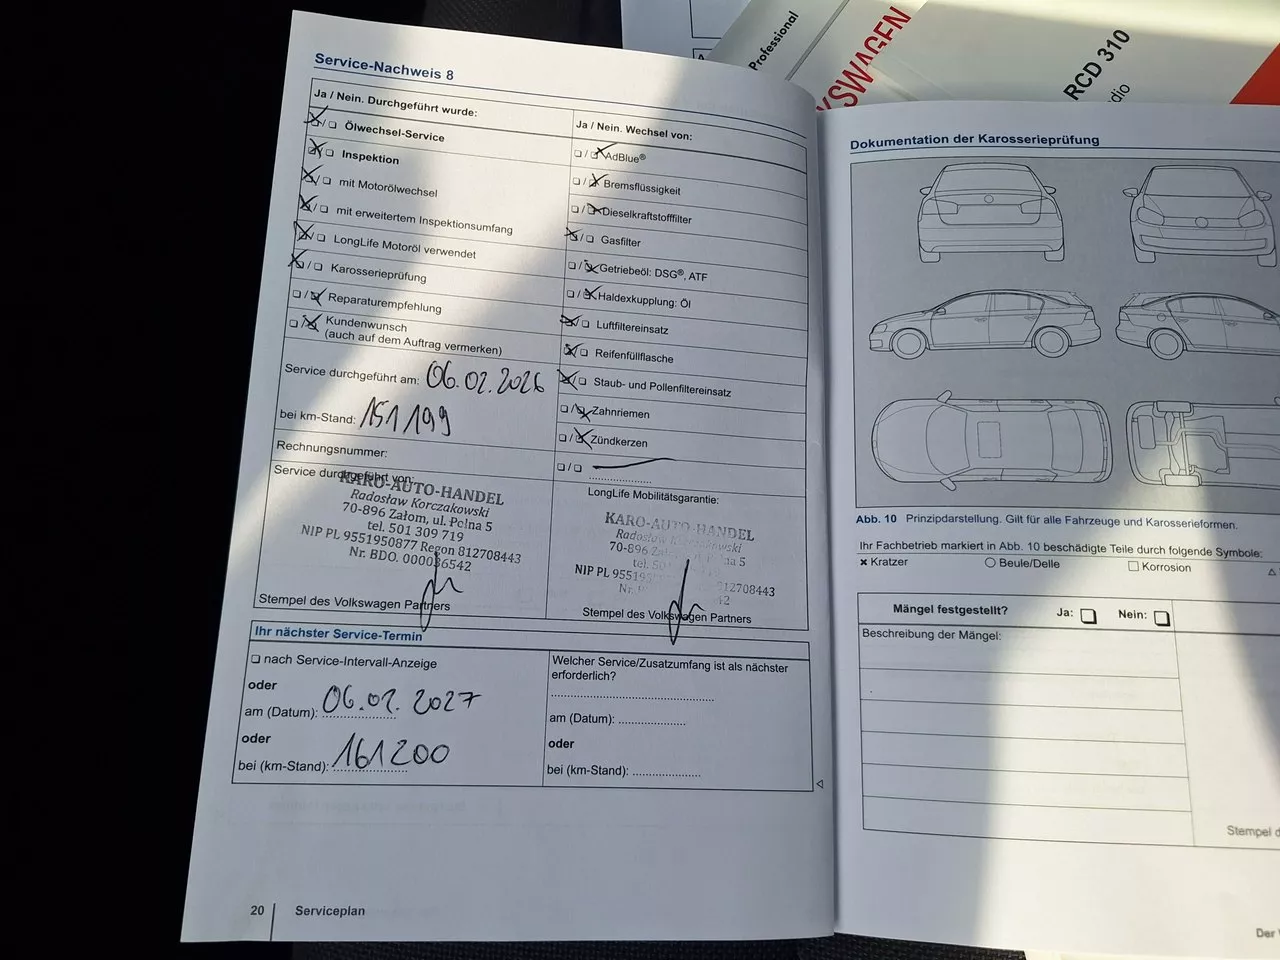 Service-Nachweis 8
Ja / Nein. Durchgeführt wurde:
Ölwechsel-Service
Inspektion
mit Motorölwechsel
mit erweitertem Inspektionsumfang
LongLife Motoröl verwendet
Karosserieprüfung
Reparaturempfehlung
Kundenwunsch
(auch auf dem Auftrag vermerken)
Service durchgeführt am: 06.02.2026
bei km-Stand: 151199
Rechnungsnummer:
Service durchgeführt von:
KARO-AUTO-HANDEL
Radosław Korczakowski
70-896 Załom, ul. Pełna 5
tel. 501 309 719
NIP PL 9551950877 Regon 812708443
Nr. BDO. 000036542
Stempel des Volkswagen Partners
Ja / Nein. Wechsel von:
AdBlue®
Bremsflüssigkeit
Dieselkraftstofffilter
Gasfilter
Getriebeöl: DSG®, ATF
Haldexkupplung: Öl
Luftfiltereinsatz
Reifenfüllflasche
Staub- und Pollenfiltereinsatz
Zahnriemen
Zündkerzen
LongLife Mobilitätsgarantie:
KARO-AUTO-HANDEL
Radosław Korczakowski
70-896 Za na 5
tel. 50
NIP PL 95519 812708443
Nr. 42
Stempel des Volkswagen Partners
Ihr nächster Service-Termin
nach Service-Intervall-Anzeige
oder
am (Datum): 06.02.2027
oder
bei (km-Stand): 161200
Welcher Service/Zusatzumfang ist als nächster
erforderlich?
am (Datum):
oder
bei (km-Stand):
20 Serviceplan
Professional
KSWAGEN
RCD 310
dio
Dokumentation der Karosserieprüfung
Abb. 10 Prinzipdarstellung. Gilt für alle Fahrzeuge und Karosserieformen.
Ihr Fachbetrieb markiert in Abb. 10 beschädigte Teile durch folgende Symbole:
Kratzer
Beule/Delle
Korrosion
Mängel festgestellt? Ja: Nein:
Beschreibung der Mängel:
Stempel d
Der